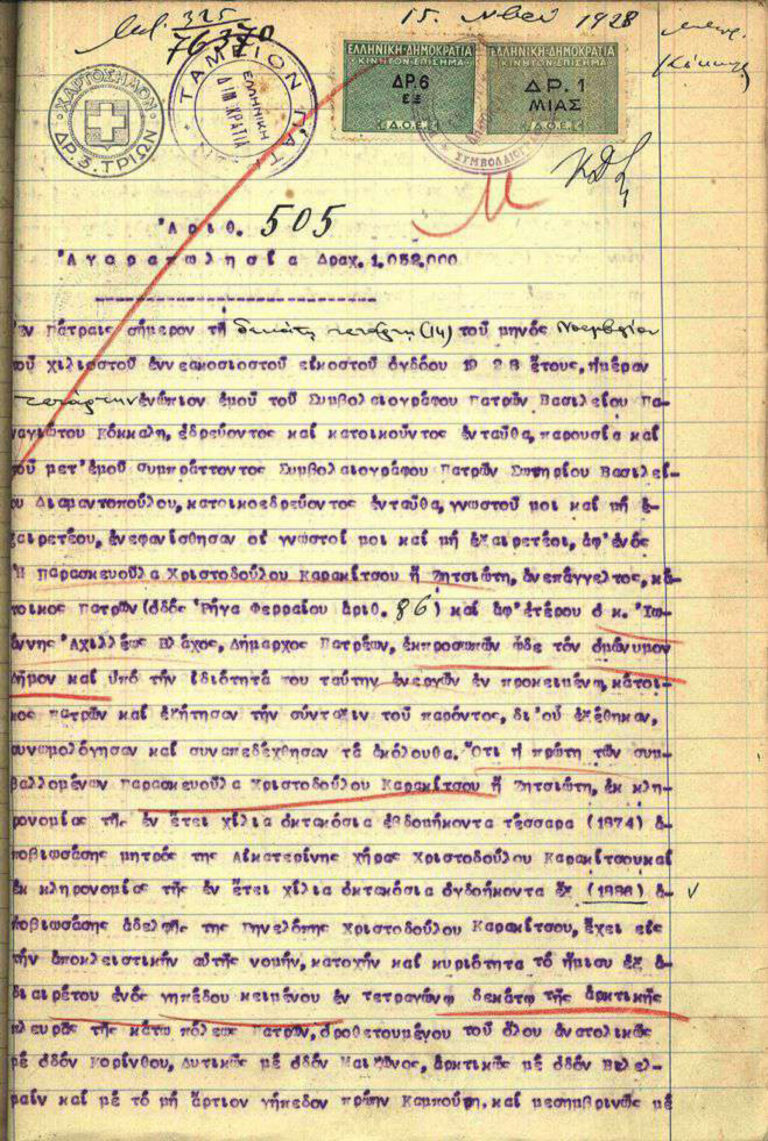 15. 1928
325
76370
ΧΑΡΤΟΣΗΜΟΝ
ΔΡ. 3. ΤΡΙΩΝ
ΤΑΜΕΙΟΝ ΠΑΤ
ΕΛΛΗΝΙΚΗ
ΔΗΜΟΚΡΑΤΙΑ
ΕΛΛΗΝΙΚΗ·ΔΗΜΟΚΡΑΤΙΑ
ΚΙΝΗΤΟΝ·ΕΠΙΣΗΜΑ
ΔΡ. 6
ΕΞ
Δ.Ο.Ε.
ΕΛΛΗΝΙΚΗ·ΔΗΜΟΚΡΑΤΙΑ
ΚΙΝΗΤΟΝ·ΕΠΙΣΗΜΑ
ΔΡ. 1
ΜΙΑΣ
Δ.Ο.Ε.
Ἀριθ. 505
Ἀγοραπωλησία Δραχ. 1.052.000
Ἐν Πάτραις σήμερον τῇ δεκάτη τετάρτη (14) τοῦ μηνός Νοεμβρίου
τοῦ χιλιοστοῦ ἐννεακοσιοστοῦ εἰκοστοῦ ὀγδόου 1928 ἔτους, ἡμέραν
τετάρτην ἐνώπιον ἐμοῦ τοῦ Συμβολαιογράφου Πατρῶν Βασιλείου Πα-
ναγιώτου Κόκκαλη, ἑδρεύοντος καί κατοικοῦντος ἐνταῦθα, παρουσία καί
τοῦ μετ' ἐμοῦ συμπράττοντος Συμβολαιογράφου Πατρῶν Σωτηρίου Βασιλεί-
ου Διαμαντοπούλου, κατοικοεδρεύοντος ἐνταῦθα, γνωστοῦ μοι καί μή ἐ-
ξαιρετέου, ἐνεφανίσθησαν οἱ γνωστοί μοι καί μή ἐξαιρετέοι, ἀφ' ἑνός
Ἡ Παρασκευούλα Χριστοδούλου Καρακίτσου ἤ Ζητσιώτη, ἀνεπάγγελτος, κά-
τοικος Πατρῶν (ὁδός Ῥήγα Φερραίου ἀριθ. 86) καί ἀφ' ἑτέρου ὁ κ. Ἰω-
άννης Ἀχιλλέως Βλάχος, Δήμαρχος Πατρέων, ἐκπροσωπῶν ὧδε τόν ὁμώνυμον
Δῆμον καί ὑπό τήν ἰδιότητά του ταύτην ἐνεργῶν ἐν προκειμένῳ, κάτοι-
κος Πατρῶν καί ἐζήτησαν τήν σύνταξιν τοῦ παρόντος, δι' οὗ ἐξέθηκαν,
συνωμολόγησαν καί συναπεδέχθησαν τά ἀκόλουθα. Ὅτι ἡ πρώτη τῶν συμ-
βαλλομένων Παρασκευούλα Χριστοδούλου Καρακίτσου ἤ Ζητσιώτη, ἐκ κλη-
ρονομίας τῆς ἐν ἔτει χίλια ὀκτακόσια ἑβδομήκοντα τέσσαρα (1874) ἀ-
ποβιωσάσης μητρός της Αἰκατερίνης χήρας Χριστοδούλου Καρακίτσου καί
ἐκ κληρονομίας τῆς ἐν ἔτει χίλια ὀκτακόσια ὀγδοήκοντα ἕξ (1886) ἀ-
ποβιωσάσης ἀδελφῆς της Πηνελόπης Χριστοδούλου Καρακίτσου, ἔχει εἰς
τήν ἀποκλειστικήν αὐτῆς νομήν, κατοχήν καί κυριότητα τό ἥμισυ ἐξ ἀ-
διαιρέτου ἑνός γηπέδου κειμένου ἐν τετραγώνῳ δεκάτῳ τῆς ἀρκτικῆς
πλευρᾶς τῆς κάτω πόλεως Πατρῶν, ὁροθετουμένου τοῦ ὅλου ἀνατολικῶς
μέ ὁδόν Κορίνθου, Δυτικῶς μέ ὁδόν Μαιζῶνος, ἀρκτικῶς μέ ὁδόν Βελελ-
μαίν καί μέ τό μή ἄρτιον γήπεδον πρώην Καμπούρη, καί μεσημβρινῶς μέ